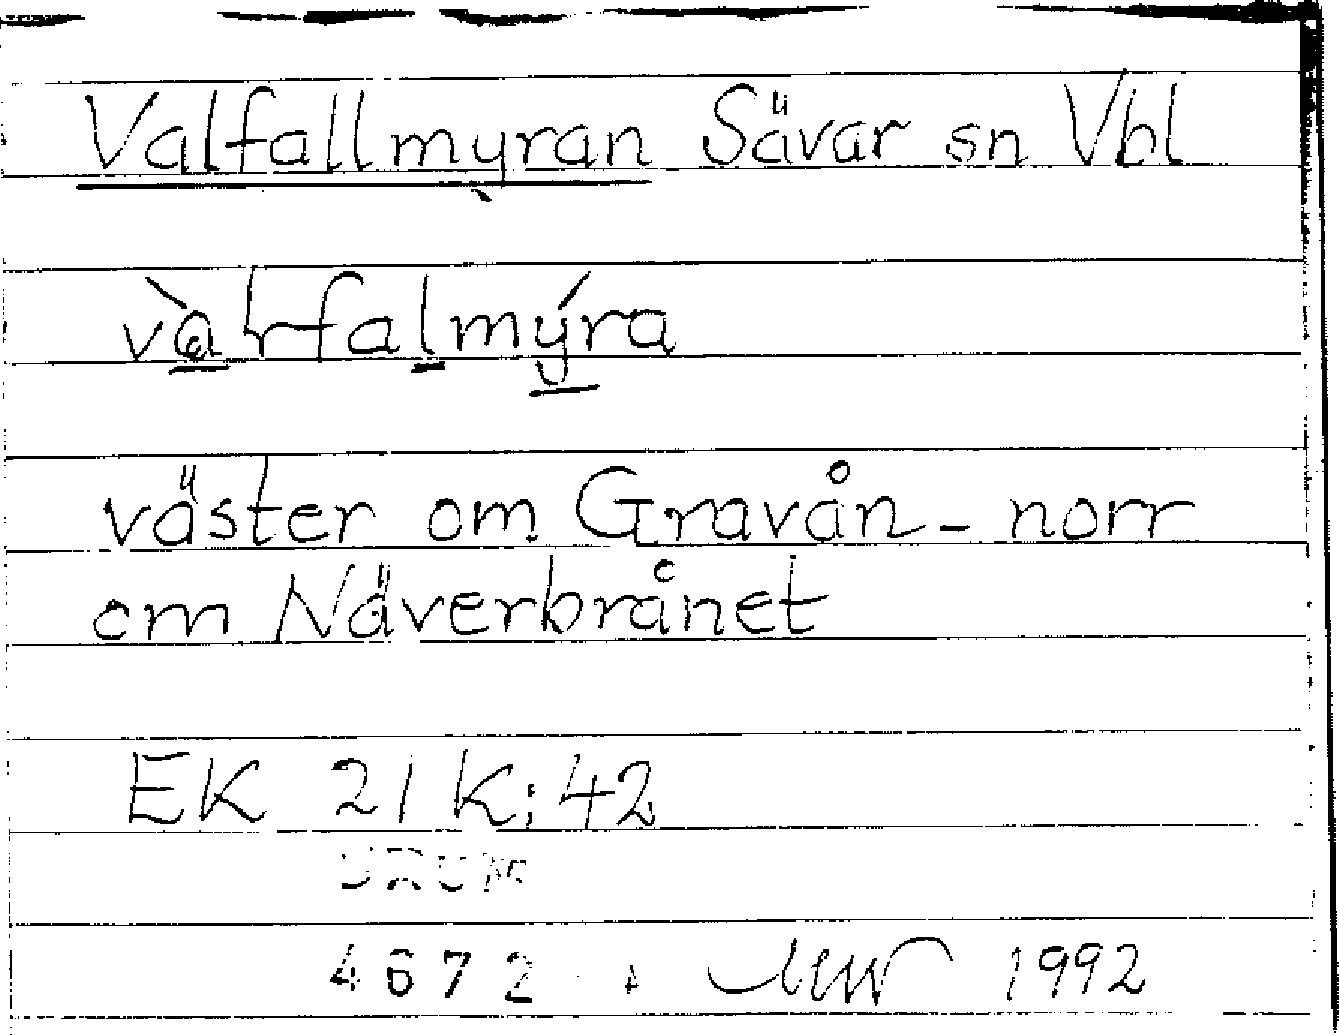 Valfallmyran Sävar sn Vbl
väster om Gravån - norr
om Näverbrånet
EK 21 K; 42
4672 1992